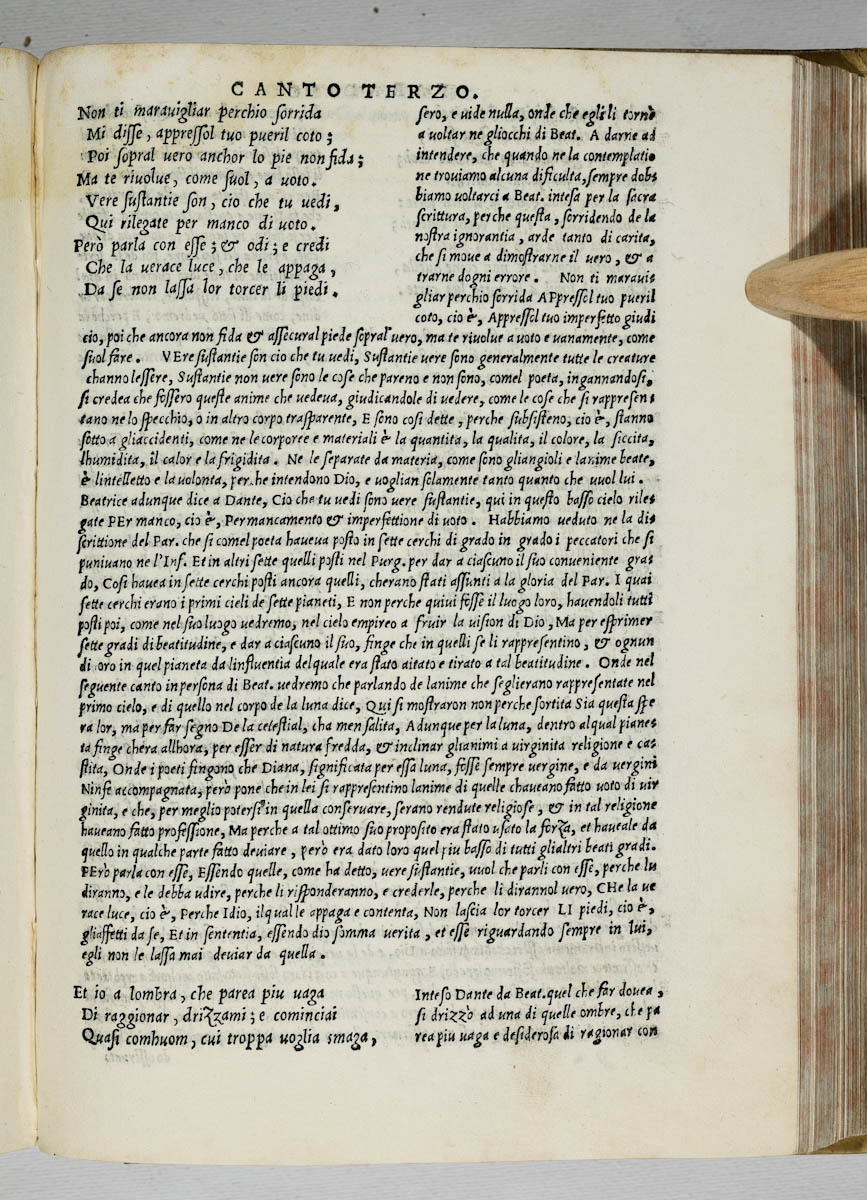 CANTO TERZO.
Non ti marauigliar perchio sorrida
Mi disse, appressol tuo pueril coto;
Poi sopral uero anchor lo pie non fida;
Ma te riuolue, come suol, a uoto.
Vere sustantie son, cio che tu uedi,
Qui rilegate per manco di uoto.
Però parla con esse; & odi; e credi
Che la uerace luce, che le appaga,
Da se non lassa lor torcer li piedi.
sero, e uide nulla, onde che egli li tornò
a uoltar ne gliocchi di Beat. A darne ad
intendere, che quando ne la contemplatio
ne trouiamo alcuna dificulta, sempre dob⸗
biamo uoltarci a Beat. intesa per la sacra
scrittura, perche questa, sorridendo de la
nostra ignorantia, arde tanto di carita,
che si moue a dimostrarne il uero, & a
trarne dogni errore. Non ti marauis
gliar perchio sorrida APpressol tuo pueril
coto, cio è, Appressol tuo imperfetto giudi
cio, poi che ancora non fida & assecural piede sopral uero, ma te riuolue a uoto e uanamente, come
suol fare. VEre sustantie son cio che tu uedi, Sustantie uere sono generalmente tutte le creature
channo lessere, Sustantie non uere sono le cose che pareno e non sono, comel poeta, ingannandosi,
si credea che fossero queste anime che uedeua, giudicandole di uedere, come le cose che si rappresen⸗
tano ne lo specchio, o in altro corpo trasparente, E sono cosi dette, perche subsisteno, cio è, stanno
sotto a gliaccidenti, come ne le corporee e materiali è la quantita, la qualita, il colore, la siccita,
lhumidita, il calor e la frigidita. Ne le separate da materia, come sono gliangioli e lanime beate,
è lintelletto e la uolonta, perche intendono Dio, e uoglian solamente tanto quanto che uuol lui.
Beatrice adunque dice a Dante, Cio che tu uedi sono uere sustantie, qui in questo basso cielo rile⸗
gate PEr manco, cio è, Per mancamento & imperfettione di uoto. Habbiamo ueduto ne la di⸗
scrittione del Par. che si comel poeta haueua posto in sette cerchi di grado in grado i peccatori che si
puniuano ne l'Inf. Et in altri sette quelli posti nel Purg. per dar a ciascuno il suo conueniente gra⸗
do, Cosi hauea in sette cerchi posti ancora quelli, cherano stati assunti a la gloria del Par. I quai
sette cerchi erano i primi cieli de sette pianeti, E non perche quiui fosse il luogo loro, hauendoli tutti
posti poi, come nel suo luogo uedremo, nel cielo empireo a fruir la uision di Dio, Ma per esprimer
sette gradi di beatitudine, e dar a ciascuno il suo, finge che in quelli se li rappresentino, & ognun
di loro in quel pianeta da linfluentia del quale era stato aitato e tirato a tal beatitudine. Onde nel
seguente canto in persona di Beat. uedremo che parlando de lanime che seglierano rappresentate nel
primo cielo, e di quello nel corpo de la luna dice, Qui si mostraron non perche sortita Sia questa spe
ra lor, ma per far segno De la celestial, cha men salita, Adunque per la luna, dentro al qual piane⸗
ta finge chera allhora, per esser di natura fredda, & inclinar glianimi a uirginita religione e ca⸗
stita, Onde i poeti fingono che Diana, significata per essa luna, fosse sempre uergine, e da uergini
Ninfe accompagnata, però pone che in lei si rappresentino lanime di quelle chaueano fatto uoto di uir
ginita, e che, per meglio potersi in quella conseruare, serano rendute religiose, & in tal religione
haueano fatto professione, Ma perche a tal ottimo suo proposito era stato usato la forza, et haueale da
quello in qualche parte fatto deuiare, però era dato loro quel piu basso di tutti glialtri beati gradi.
PErò parla con esse, Essendo quelle, come ha detto, uere sustantie, uuol che parli con esse, perche lu
diranno, e le debba udire, perche li risponderanno, e crederle, perche li dirannol uero, CHe la ue
race luce, cio è, Perche Idio, ilqual le appaga e contenta, Non lascia lor torcer LI piedi, cio è,
gliaffetti da se, Et in sententia, essendo dio somma uerita, et esse riguardando sempre in lui,
egli non le lassa mai deuiar da quella.
Et io a lombra, che parea piu uaga
Di raggionar, drizzami; e cominciai
Quasi comhuom, cui troppa uoglia smaga,
Inteso Dante da Beat. quel che far douea,
si drizzò ad una di quelle ombre, che pa
rea piu uaga e desiderosa di ragionar con